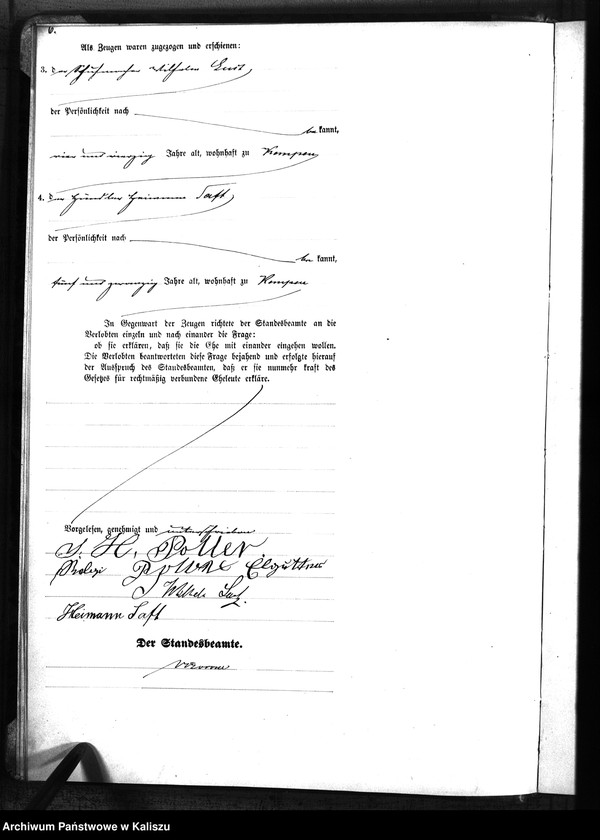 6.
Als Zeugen waren zugezogen und erschienen:
3. der Schuhmacher Wilhelm
der Persönlichkeit nach
be kannt,
vier und vierzig Jahre alt, wohnhaft zu Kempen
4. der Händler Heimann Saft
der Persönlichkeit nach
be kannt,
fünf und zwanzig Jahre alt, wohnhaft zu Kempen
In Gegenwart der Zeugen richtete der Standesbeamte an die
Verlobten einzeln und nach einander die Frage:
ob sie erklären, daß sie die Ehe mit einander eingehen wollen.
Die Verlobten beantworteten diese Frage bejahend und erfolgte hierauf
der Ausspruch des Standesbeamten, daß er sie nunmehr kraft des
Gesetzes für rechtmäßig verbundene Eheleute erkläre.
Vorgelesen, genehmigt und unterschrieben
H.
Heimann Saft
Der Standesbeamte.
Archiwum Państwowe w Kaliszu